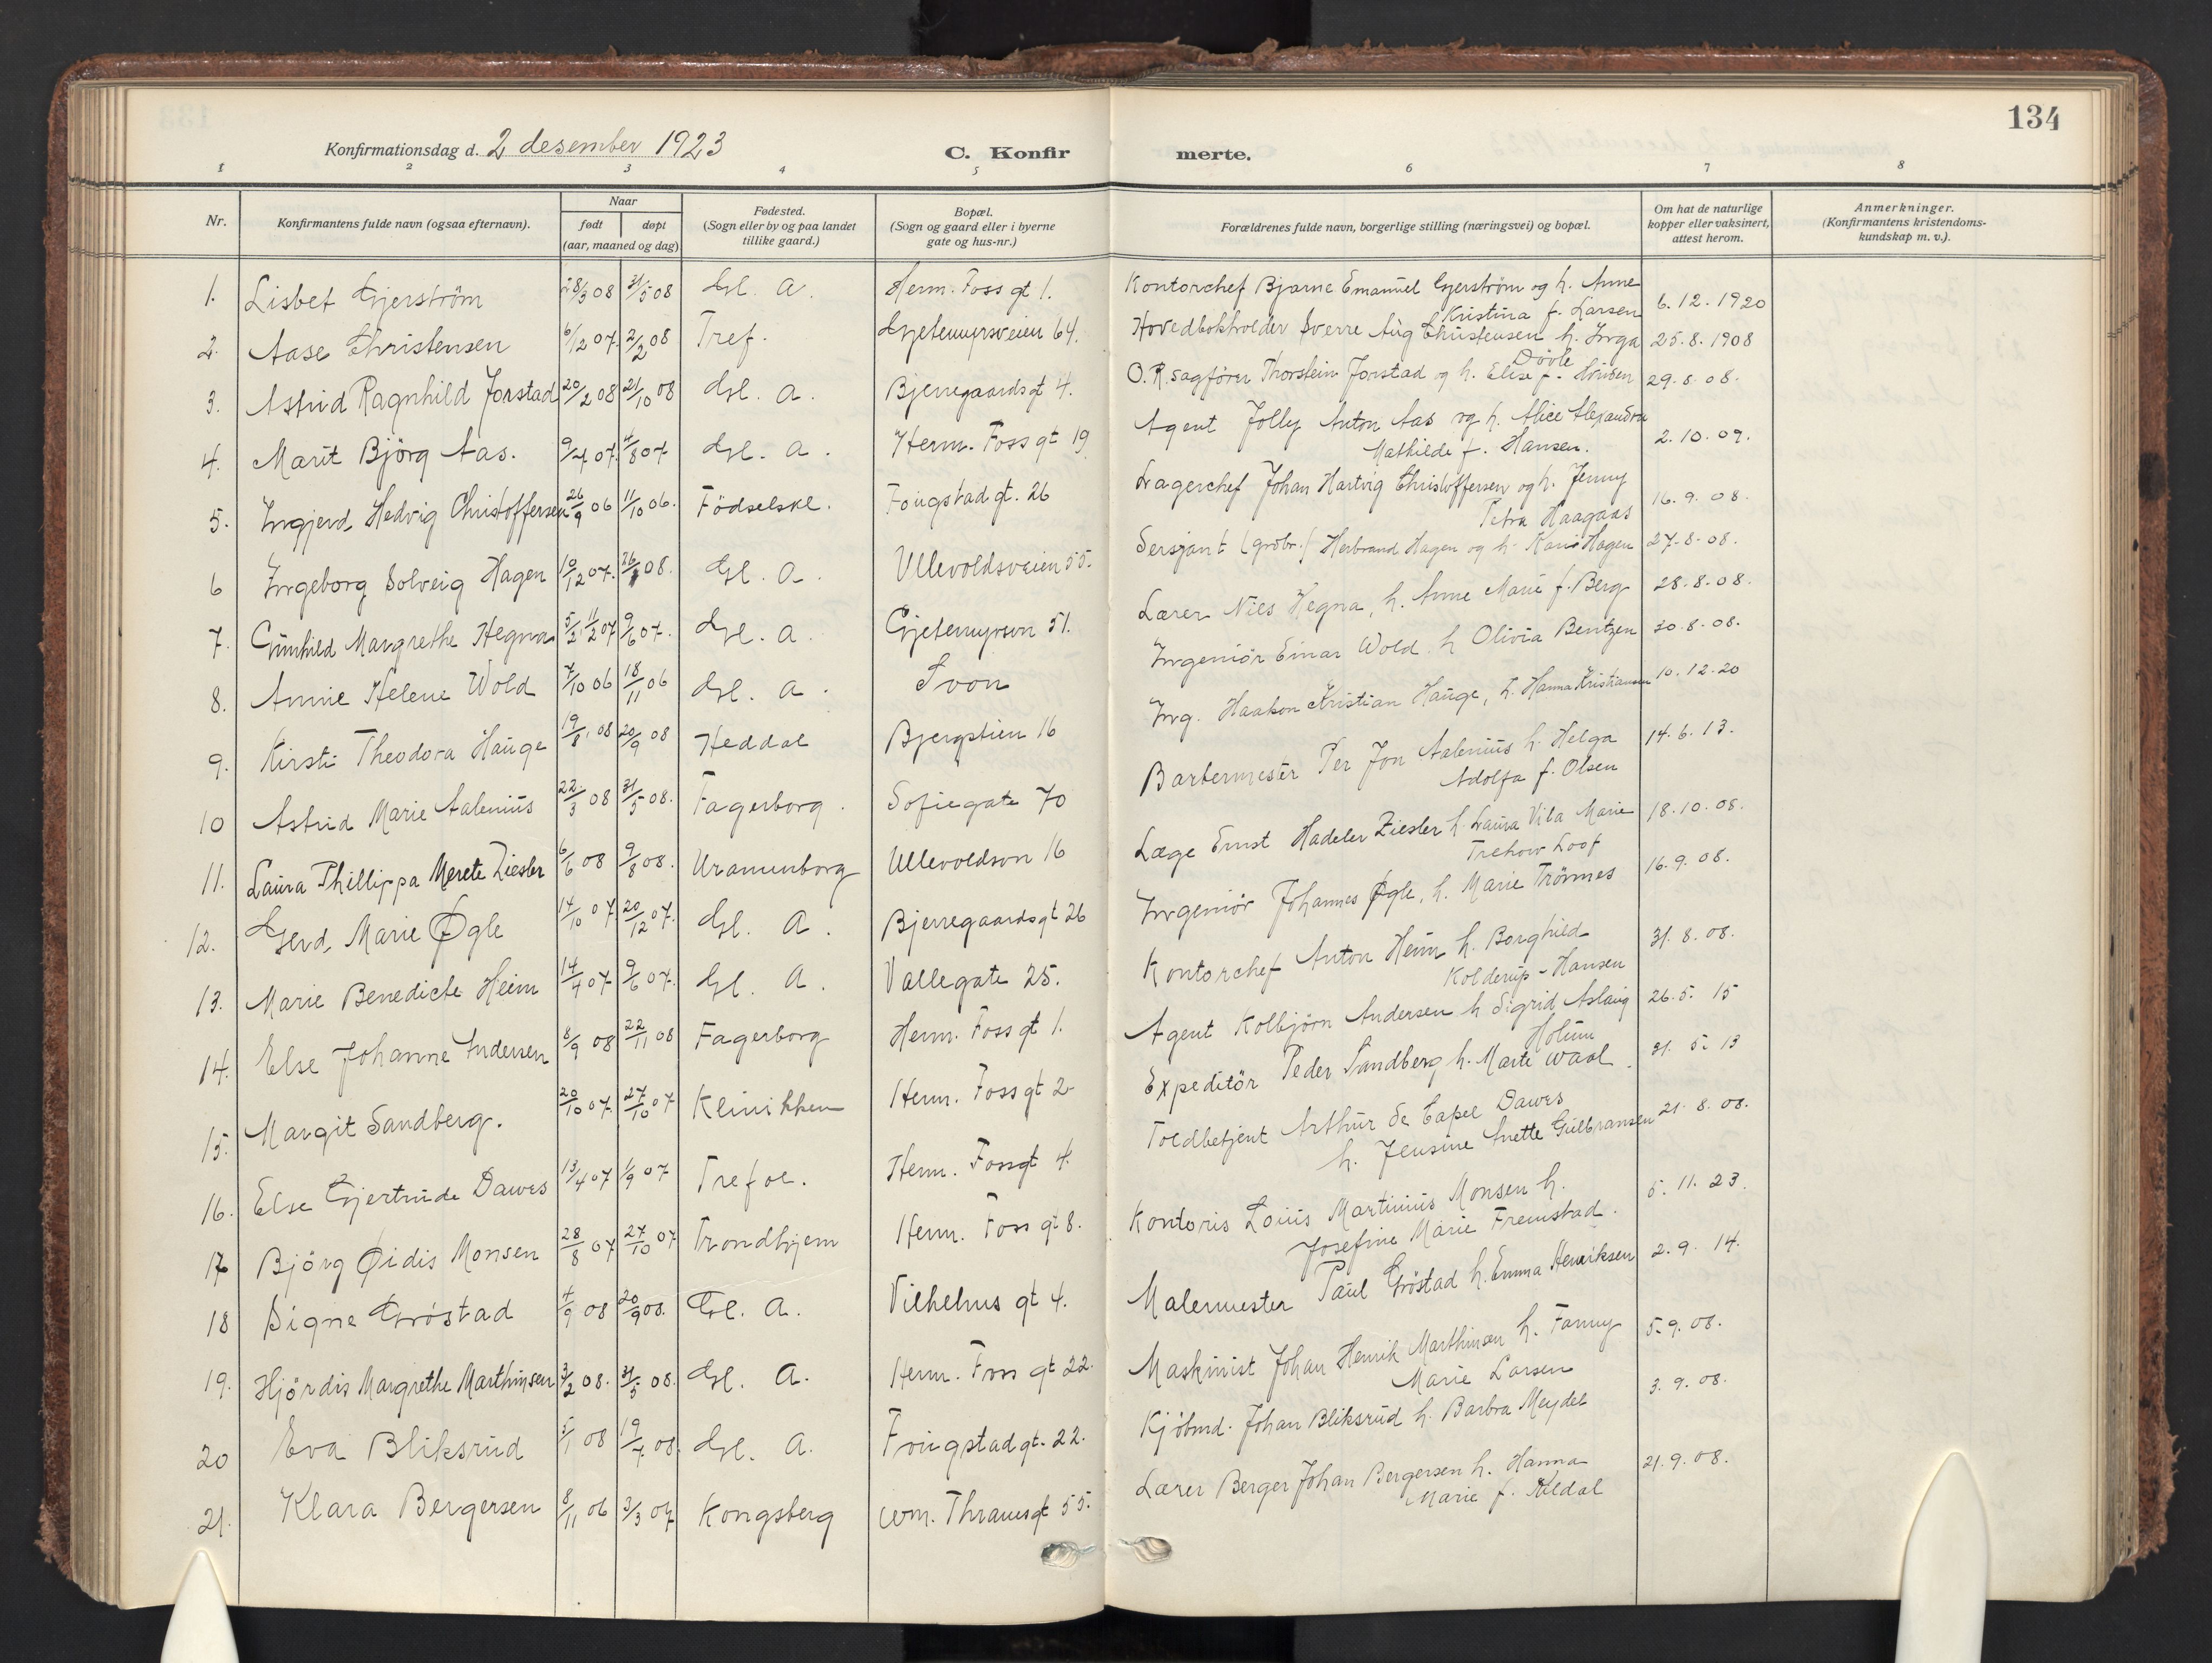 134
Konfirmationsdag d. 2 desember 1923 C. Konfirmerte.
1 2 3 4 5 6 7 8
Nr. Konfirmantens fulde navn (ogsaa efternavn). Naar født døpt (aar, maaned og dag) Fødested. (Sogn eller by og paa landet tillike gaard.) Bopæl. (Sogn og gaard eller i byerne gate og hus-nr.) Forældrenes fulde navn, borgerlige stilling (næringsvei) og bopæl. Om hat de naturlige kopper eller vaksinert, attest herom. Anmerkninger. (Konfirmantens kristendomskundskap m. v.).
1. Lisbet Gjerström 28/3 08 31/5 08 Gl. A. Herm. Foss gt 1. Kontorchef Bjarne Emanuel Gjerström og h. Anne Kristina f. Larsen 6.12.1920
2. Aase Christensen 6/12 07. 2/2 08 Tref. Gjetemyrsveien 64. Hovedbokholder Sverre Aug Christensen h. Inga Dövle 25.8.1908
3. Astrid Ragnhild Jorstad 20/2 08 21/10 08 Gl. A. Bjerregaardsgt 4. O.R.sagförer Thorstein Jorstad og h. Elise f. 29.8.08.
4. Marit Björg Aas. 9/4 07. 4/8 07 Gl. A. Herm. Foss gt 19 Agent Jolly Anton Aas og h. Alice Alexandra Mathilde f. Hansen. 2.10.09.
5. Ingjerd Hedvig Christoffersen 26/9 06 11/10 06. Födselskl. Fougstad gt. 26 Lagerchef Johan Hartvig Christoffersen og h. Jenny Petra Haagaas 16.9.08.
6 Ingeborg Solveig Hagen 10/12 07. 26/ 08. Gl. A. Ullevoldsveien 55. Sersjant (grobr.) Herbrand Hagen og h. Kari Hagen 27.8.08.
7. Gunhild Margrethe Hegna 11/2 07 9/6 07. Gl. A. Gjetemyrsvn 51. Lærer Nils Hegna, h. Anne Marie f. Berg 28.8.08.
8. Annie Helene Wold 7/10 06 18/11 06 Gl. A. Ingeniör Einar Wold h Olivia Bentzen 30.8.08.
9. Kirsti Theodora Hauge 19/8 08 20/9 08 Heddal Bjergstien 16 Ing. Haakon Kristian Hauge, h. Hanna Kristiansen 10.12.20
10 Astrid Marie Aalenius 22/3 08 31/5 08. Fagerborg. Sofiegate 70 Barbermester Per Jon Aalenius h. Helga Adolfa f. Olsen 14.6.13.
11. Laura Phillippa Merete Ziesler 6/6 08 9/8 08. Uranienborg Ullevoldsvn 16 Læge Ernst Hadeler Ziesler h. Laura Vita Marie Trehow Loof 18.10.08.
12. Gerd Marie Øgle 14/10 07 20/12 07. Gl. A. Bjerregaardsgt 26 Ingeniör Johannes Øgle, h. Marie Trönnes 16.9.08.
13. Marie Benedicte Heim 14/4 07 9/6 07. Gl. A. Vallegate 25. Kontorchef Anton Heim h. Borghild Kolderup-Hansen 31.8.08.
14. Else Johanne Andersen 8/9 08 22/11 08 Fagerborg Herm. Foss gt 1. Agent Kolbjörn Andersen h Sigrid Aslaug Holum 26.5. 15
15. Margit Sandberg. 20/10 07. 27/10 07 Klinikken Herm. Foss gt 2 Expeditör Peder Sandberg h. Marte Waal. 31.5. 13
16. Else Gjertrude Dawes 13/4 07 1/9 07 Trefol. Herm. Fossgt 4. Toldbetjent Arthur de Capel Dawes h. Jensine Anette Gulbransen 21.8.08.
17 Björg Øidis Monsen 28/8 07 27/10 07 Trondhjem Herm. Foss gt 8. Kontoris Louis Martinius Monsen h. Josefine Marie Fremstad. 5.11.23.
18 Signe Gröstad 4/9 08 20/9 08. Gl. A. Vilhelms gt 4. Malermester Paul Gröstad h. Emma Henriksen 2.9.14.
19. Hjördis Margrethe Marthinsen 3/2 08. 31/5 08. Gl. A. Herm. Foss gt 22. Maskinist Johan Henrik Marthinsen h. Fanny Marie Larsen 5.9.08.
20 Eva Bliksrud 5/1 08 19/4 08. Gl. A. Fougstadgt. 22. Kjöbmd. Johan Bliksrud h. Barbra Meydel 3.9.08.
21. Klara Bergersen 8/11 06 3/3 07 Kongsberg Wm. Thranesgt 55. Lærer Berger Johan Bergersen h. Hanna Marie f. Koldal 21.9.08.